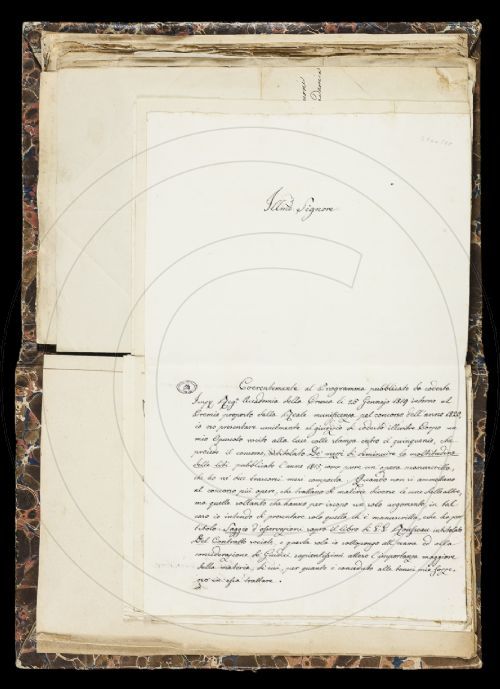 Illmo Signore
Coerentemente al Programma pubblicato da codesta
Accademia della Crusca li 25 Gennajo 1819 intorno al
Premio proposto dalla Reale munificenza pel concorso dell'anno 1820,
io oso presentare umilmente al giudizio di codesto illustre Corpo un
mio Opuscolo uscito alla luce colle stampe entro il quinquennio, che
precede il concorso, intitolato De' mezzi di diminuire la moltitudine
delle liti pubblicato l'anno 1815, come pure un'opera manoscritta,
che ho nei due trascorsi mesi composta. Quando non si ammettano
al concorso più opere, che trattano di materie diverse le une dalle altre,
ma quelle soltanto che hanno per iscopo un solo argomento, in tal
caso io intendo di presentare solo quella, che è manoscritta, che ha per
titolo Saggio d'osservazioni sopra il libro di Rousseau intitolato
Del Contratto sociale, e questa sola io sottopongo all'esame ed alla
considerazione de' Giudici sapientissimi attesa l'importanza maggiore
della materia, di cui, per quanto è conceduto alle tenui mie forze,
in essa trattare.